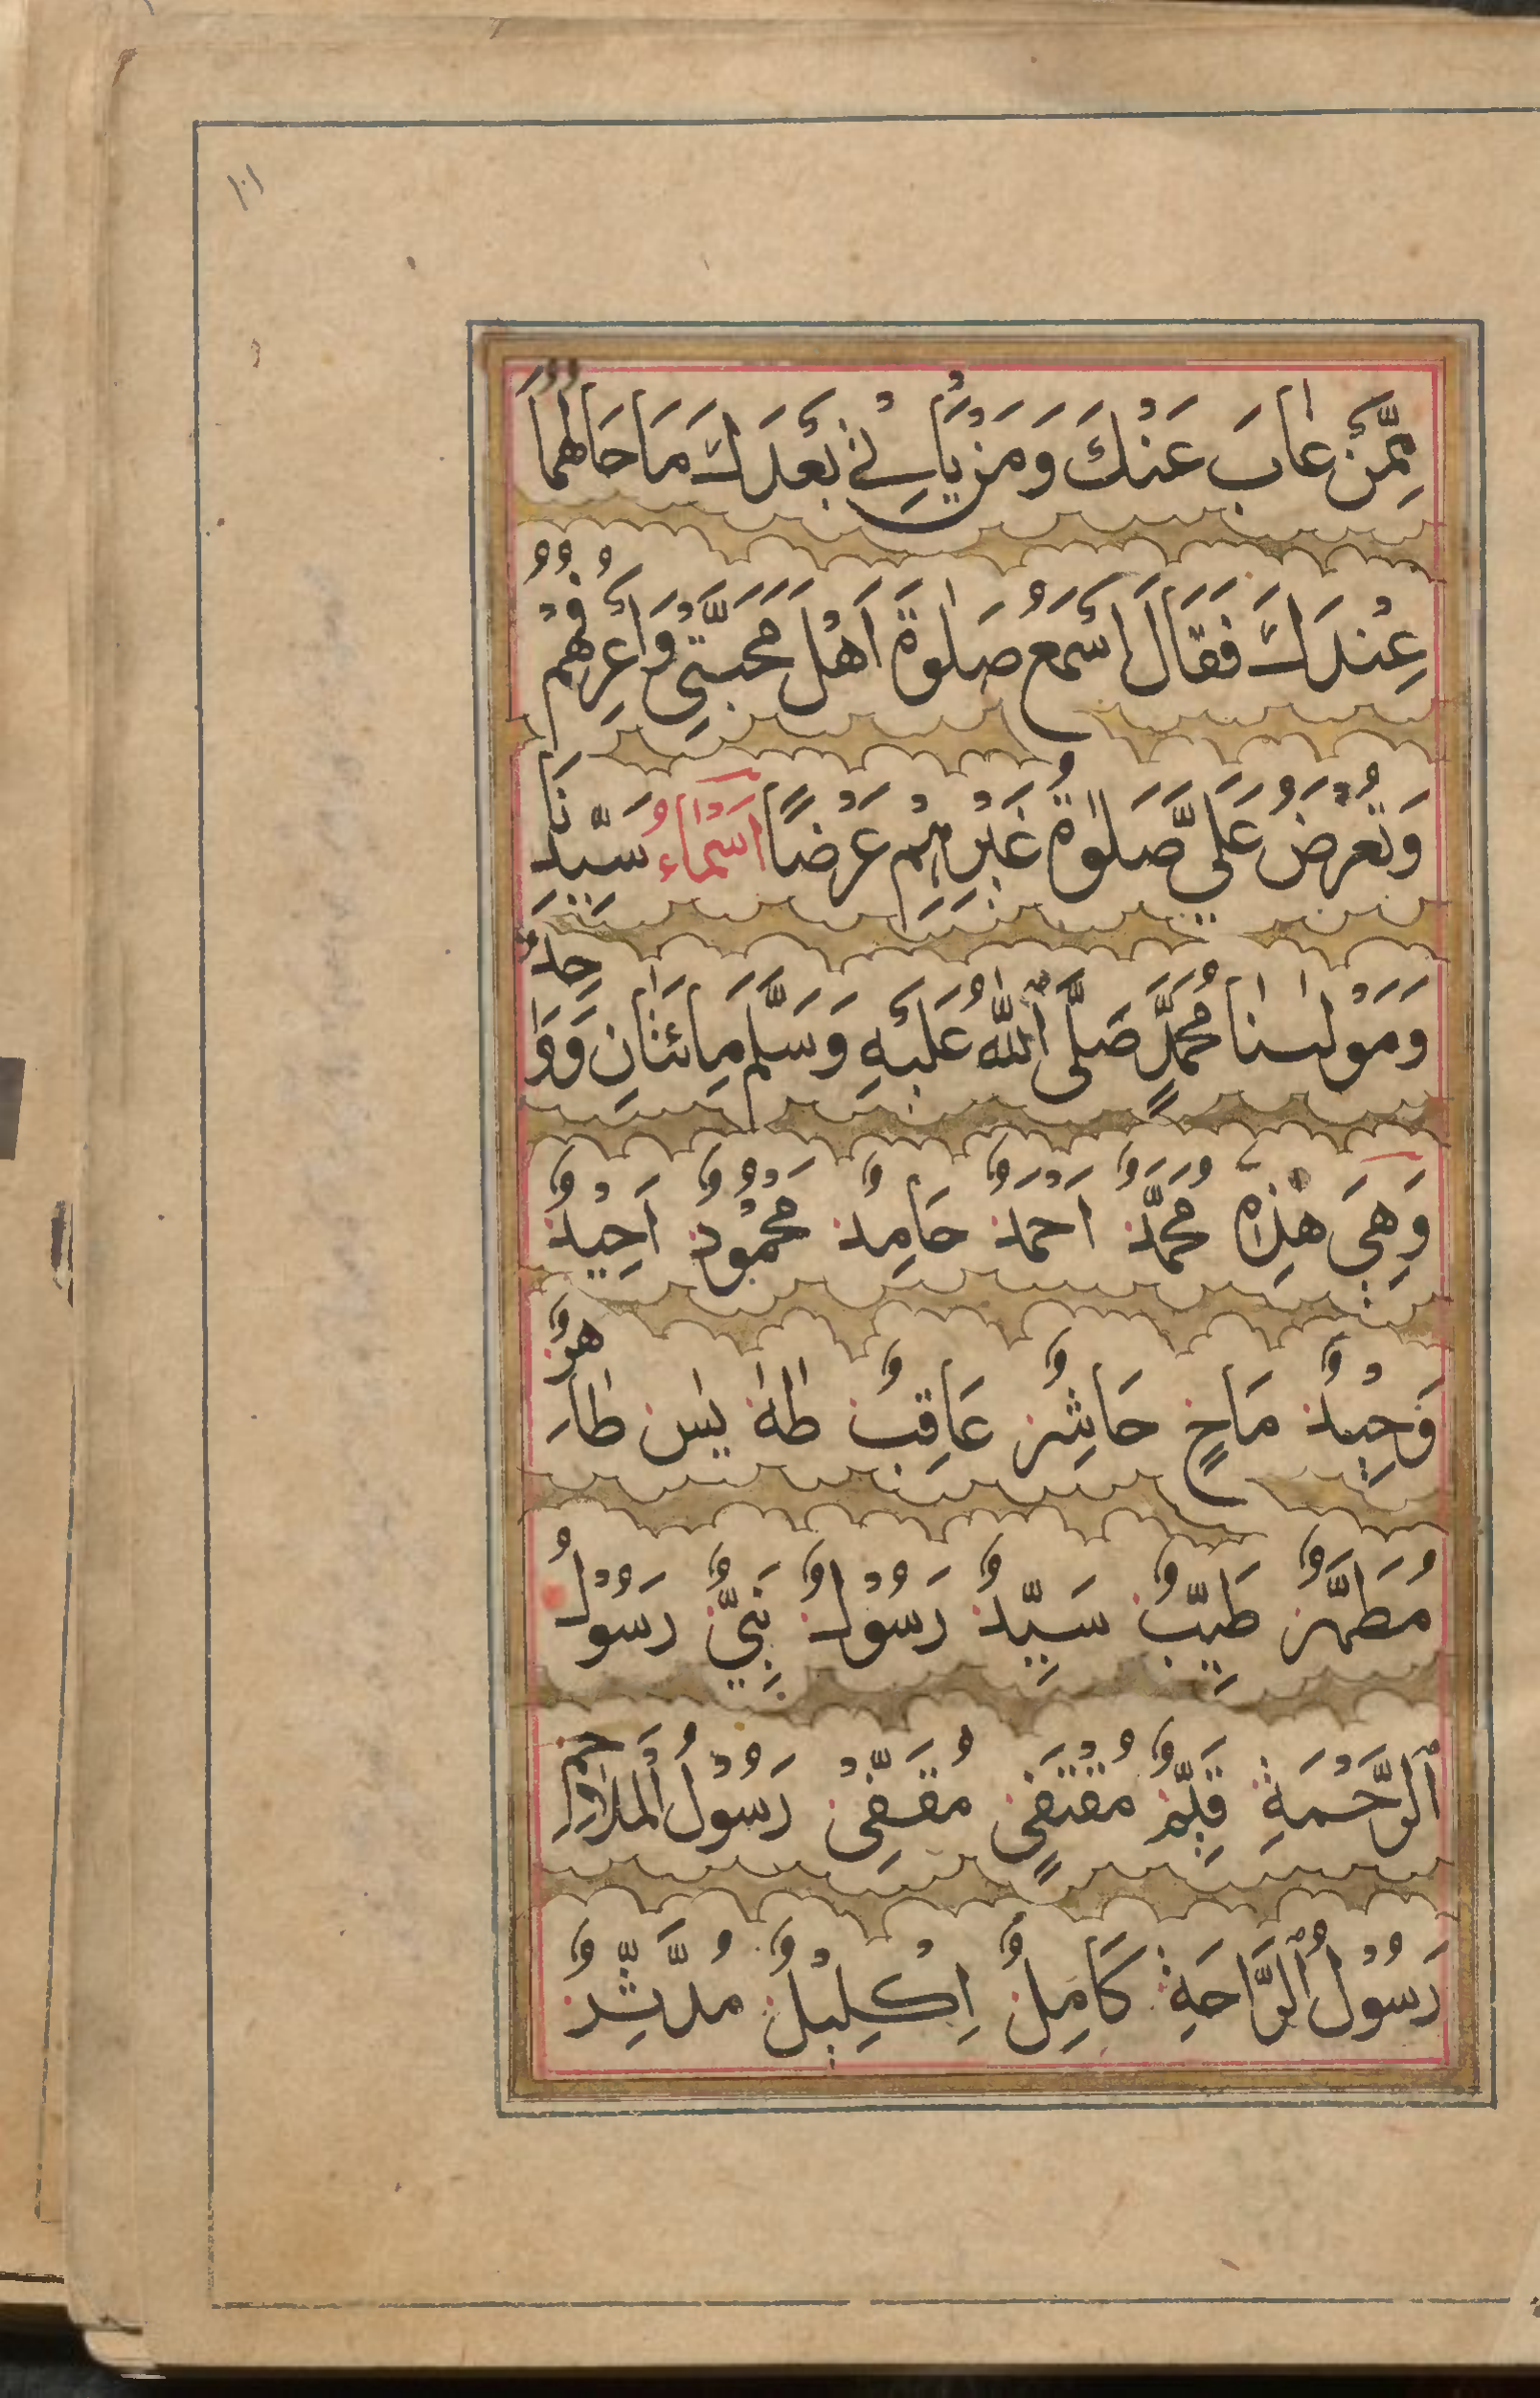 ١٠١
مِمَّنْ غَابَ عَنْكَ وَمَنْ يَّاْتِيْ بَعْدَكَ مَا حَالُهُمَا
عِنْدَكَ فَقَالَ اَسْمَعُ صَلٰوةَ اَهْلِ مَحَبَّتِيْ وَاَعْرِفُهُمْ
وَتُعْرَضُ عَلَيَّ صَلٰوةُ غَيْرِهِمْ عَرْضًا اَسْمَاءُ سَيِّدِنَا
وَمَوْلٰىنَا مُحَمَّدٍ صَلَّى ٱللّٰهُ عَلَيْهِ وَسَلَّمَ مِائَتَانِ وَوَاحِدٌ
وَهِيَ هٰذِهٖ مُحَمَّدٌ اَحْمَدُ حَامِدٌ مَحْمُوْدٌ اَحِيْدٌ
وَحِيْدٌ مَاحٍ حَاشِرٌ عَاقِبٌ طٰهٰ يٰسٓ طَاهِرٌ
مُطَهَّرٌ طَيِّبٌ سَيِّدٌ رَسُوْلٌ نَبِيٌّ رَسُوْلُ
ٱلرَّحْمَةِ قَيِّمٌ مُقْتَفٍى مُقَفِّيْ رَسُوْلُ ٱلْمَلَاحِمِ
رَسُوْلُ ٱلرَّاحَةِ كَامِلٌ اِكْلِيْلٌ مُدَّثِّرٌ